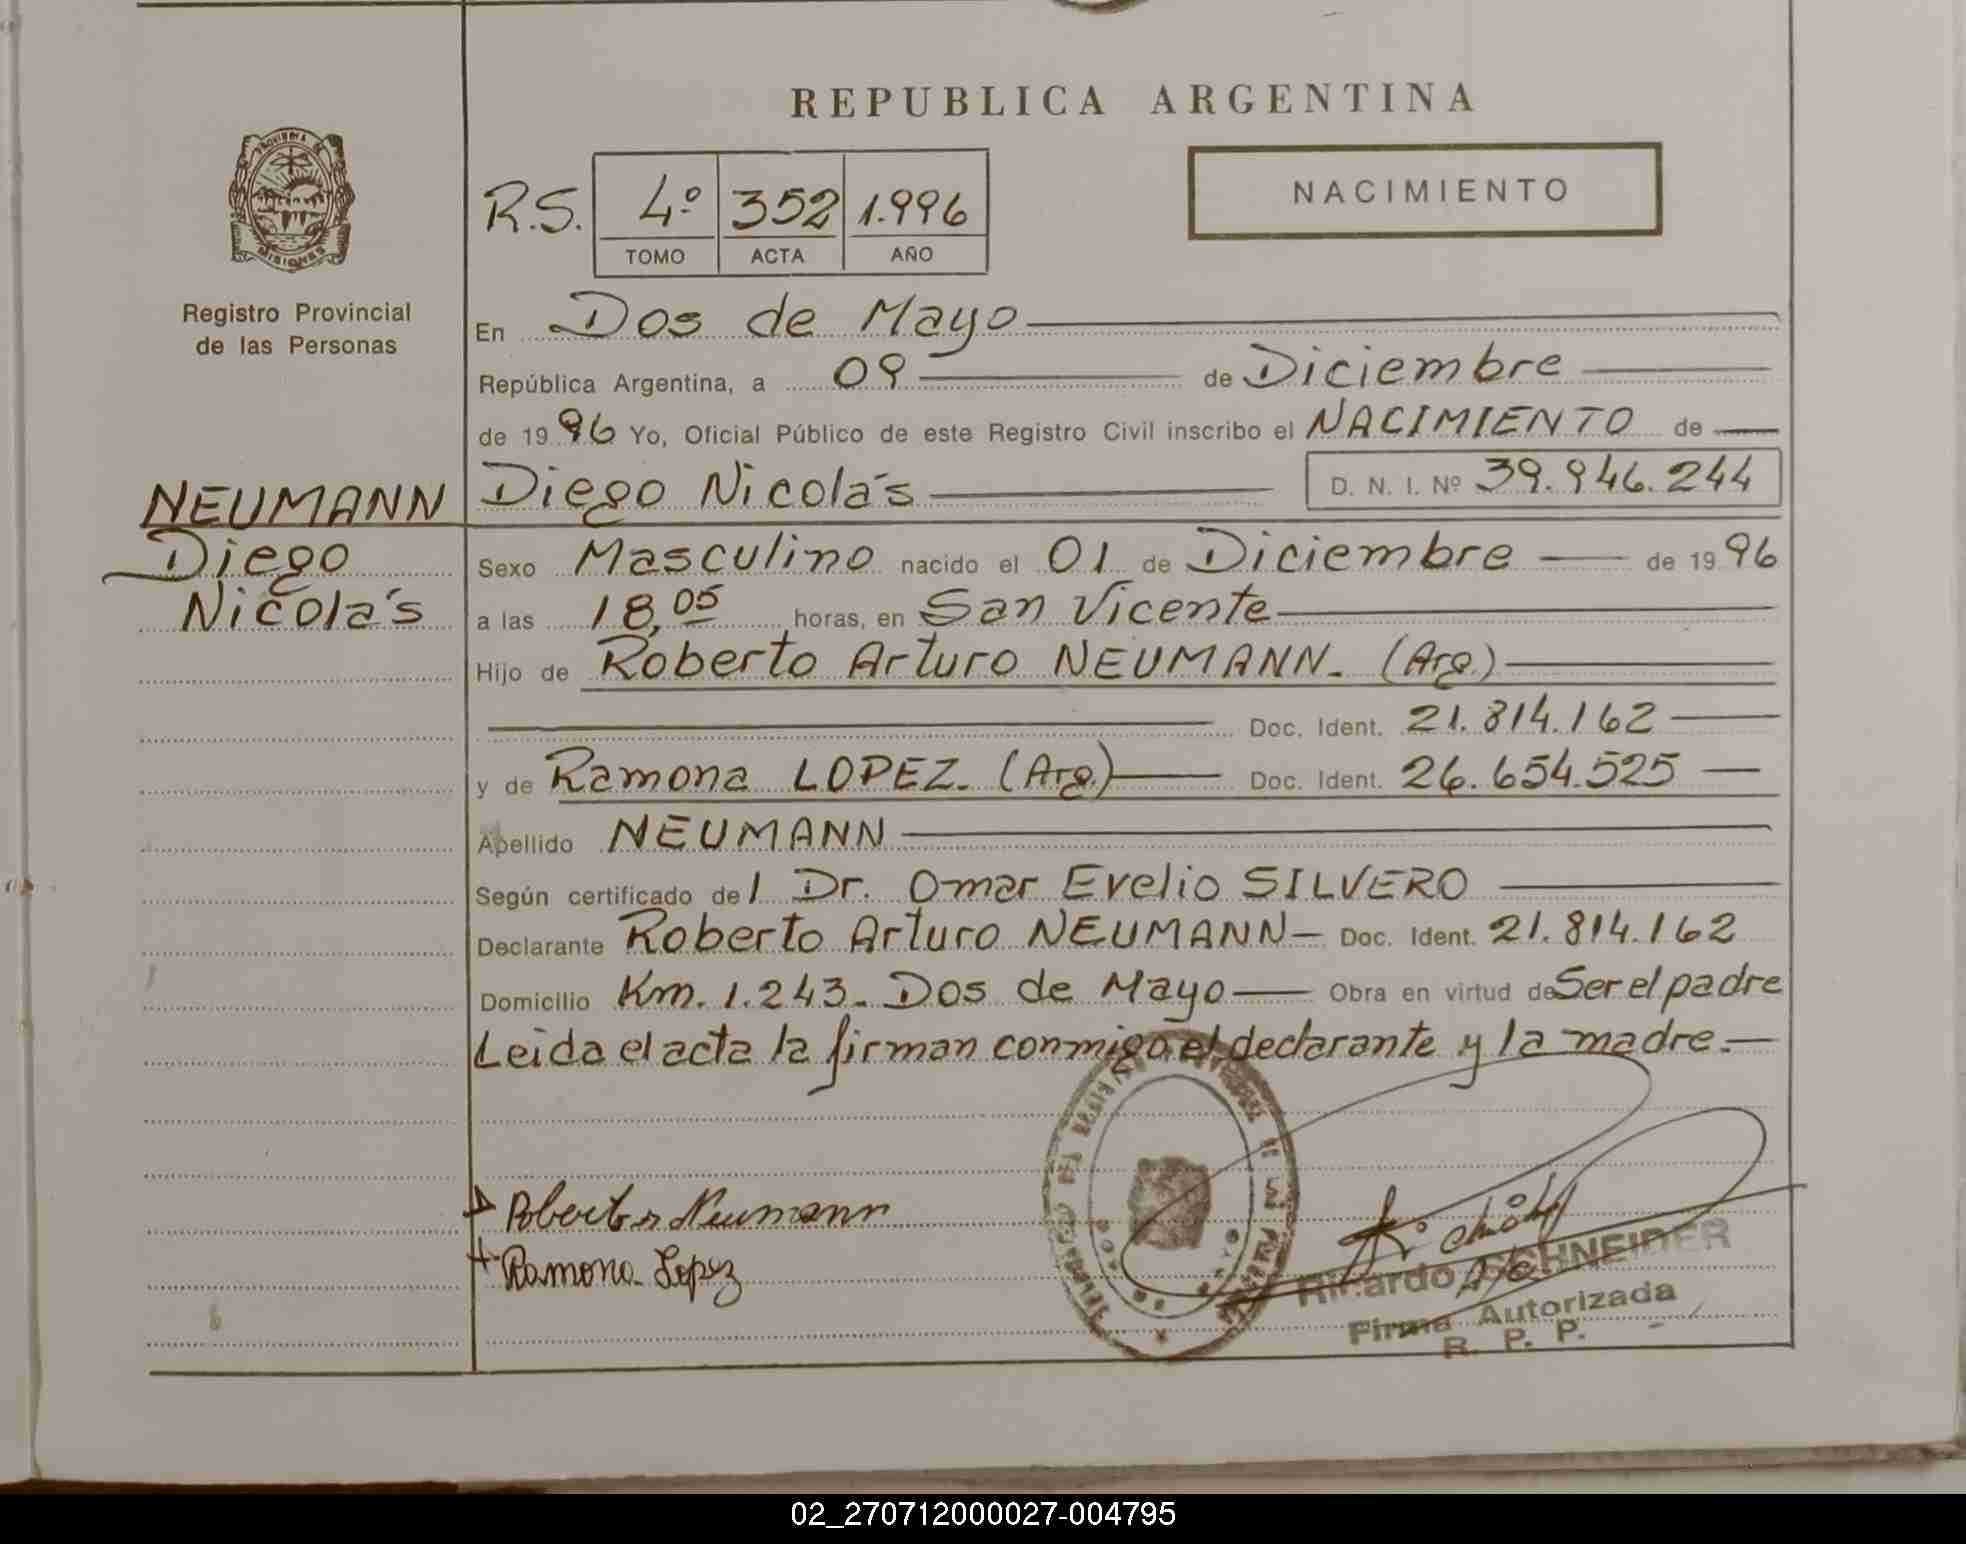 REPUBLICA ARGENTINA
NACIMIENTO
R.S. 4º 352 1.996
TOMO ACTA AÑO
PROVINCIA DE MISIONES
Registro Provincial
de las Personas
En Dos de Mayo
República Argentina, a 09 de Diciembre
de 1996 Yo, Oficial Público de este Registro Civil inscribo el NACIMIENTO de
Diego Nicolás D. N. I. Nº 39.946.244
NEUMANN
Diego
Nicolás
Sexo Masculino nacido el 01 de Diciembre de 1996
a las 18,05 horas, en San Vicente
Hijo de Roberto Arturo NEUMANN. (Arg.)
Doc. Ident. 21.814.162
y de Ramona LOPEZ. (Arg.) Doc. Ident. 26.654.525
Apellido NEUMANN
Según certificado del Dr. Omar Evelio SILVERO
Declarante Roberto Arturo NEUMANN Doc. Ident. 21.814.162
Domicilio Km. 1.243. Dos de Mayo Obra en virtud de Ser el padre
Leida el acta la firman conmigo el declarante y la madre.
Roberto Neumann
Ramona Lopez
Ricardo SCHNEIDER
Firma Autorizada
R. P. P.
02_270712000027-004795